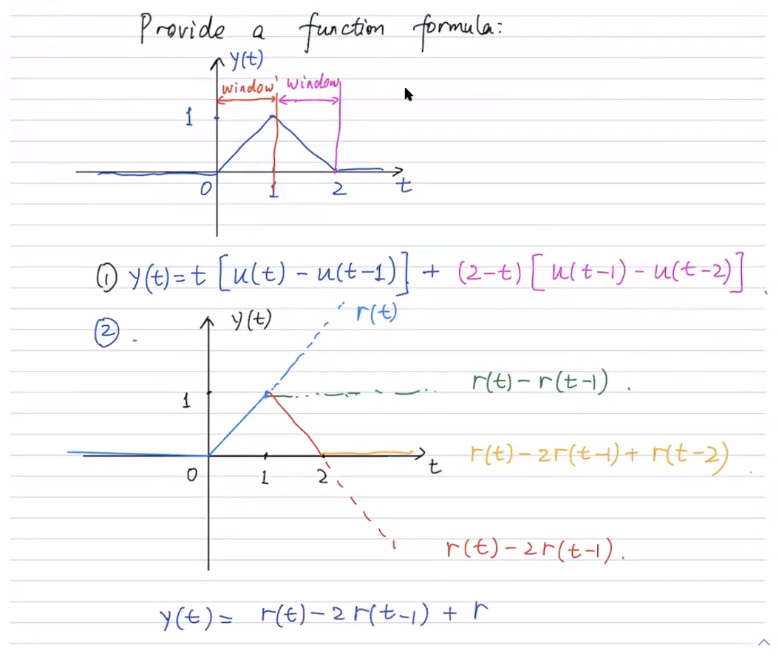 Provide a function formula:
y(t)
window window
1
0 1 2 t
① y(t)=t [u(t) - u(t-1)] + (2-t)[u(t-1) - u(t-2)]
② . y(t) r(t)
1 r(t) - r(t-1) .
r(t) - 2r(t-1) + r(t-2)
0 1 2 t
r(t) - 2r(t-1) .
y(t) = r(t) - 2r(t-1) + r